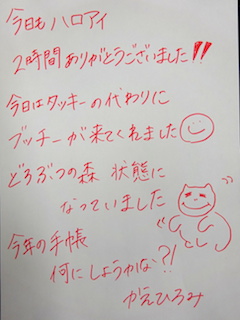 今日も ハロアイ
2時間ありがとうございました!!
今日はタッキーの代わりに
ブッチーが来てくれました
どうぶつの森 状態に
なっていました
今年の手帳
何にしようかな?!
かえひろみ